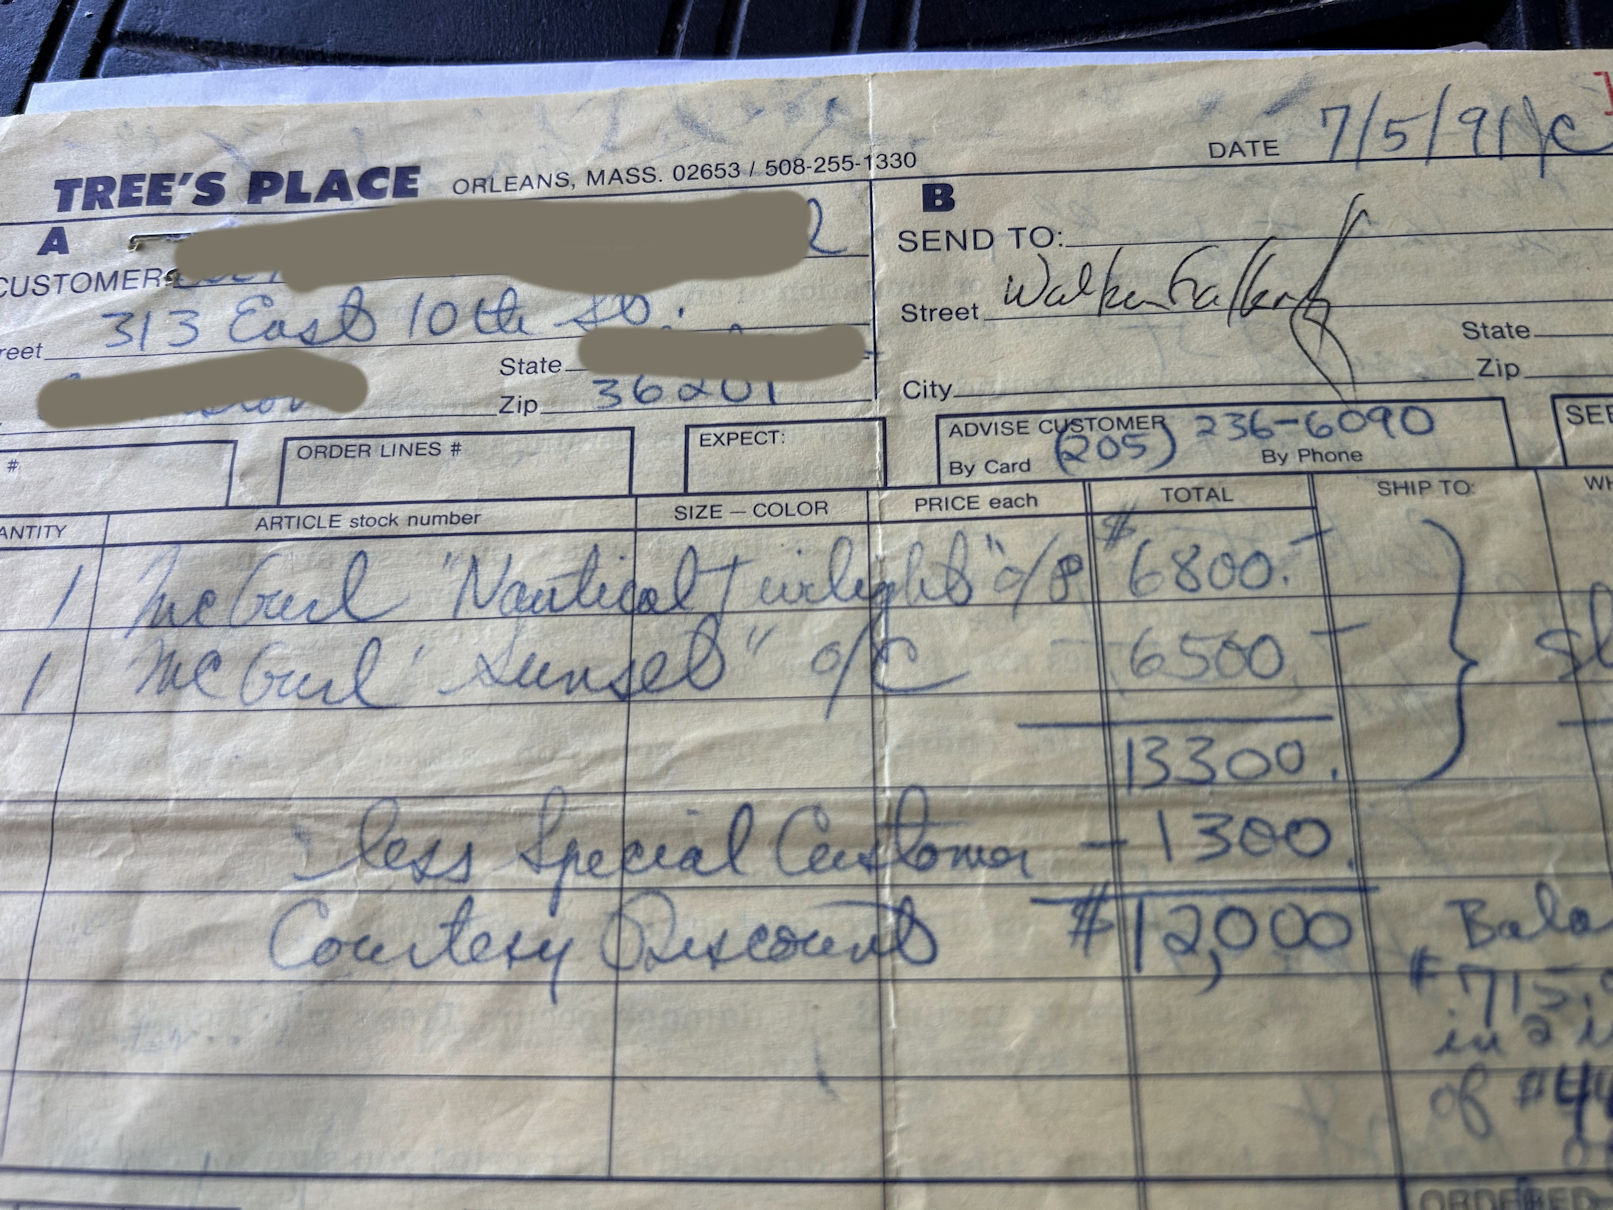 DATE 7/5/91/c
TREE'S PLACE ORLEANS, MASS. 02653 / 508-255-1330
A
CUSTOMER
313 East 10th St.
reet
State
Zip 36201
B
SEND TO:
Street Walker Gallery
State
City Zip
# ORDER LINES # EXPECT:
ADVISE CUSTOMER (205) 236-6090
By Card By Phone
SEE
ANTITY ARTICLE stock number SIZE – COLOR PRICE each TOTAL SHIP TO: WH
1 McGurl "Nautical Twilight" o/P $6800.-
1 McGurl "Sunset" o/C 6500.-
13300.
less Special Customer - 1300.
Courtesy Discount $12,000
Bala
$715.
in 2 i
of $44
ORDERED